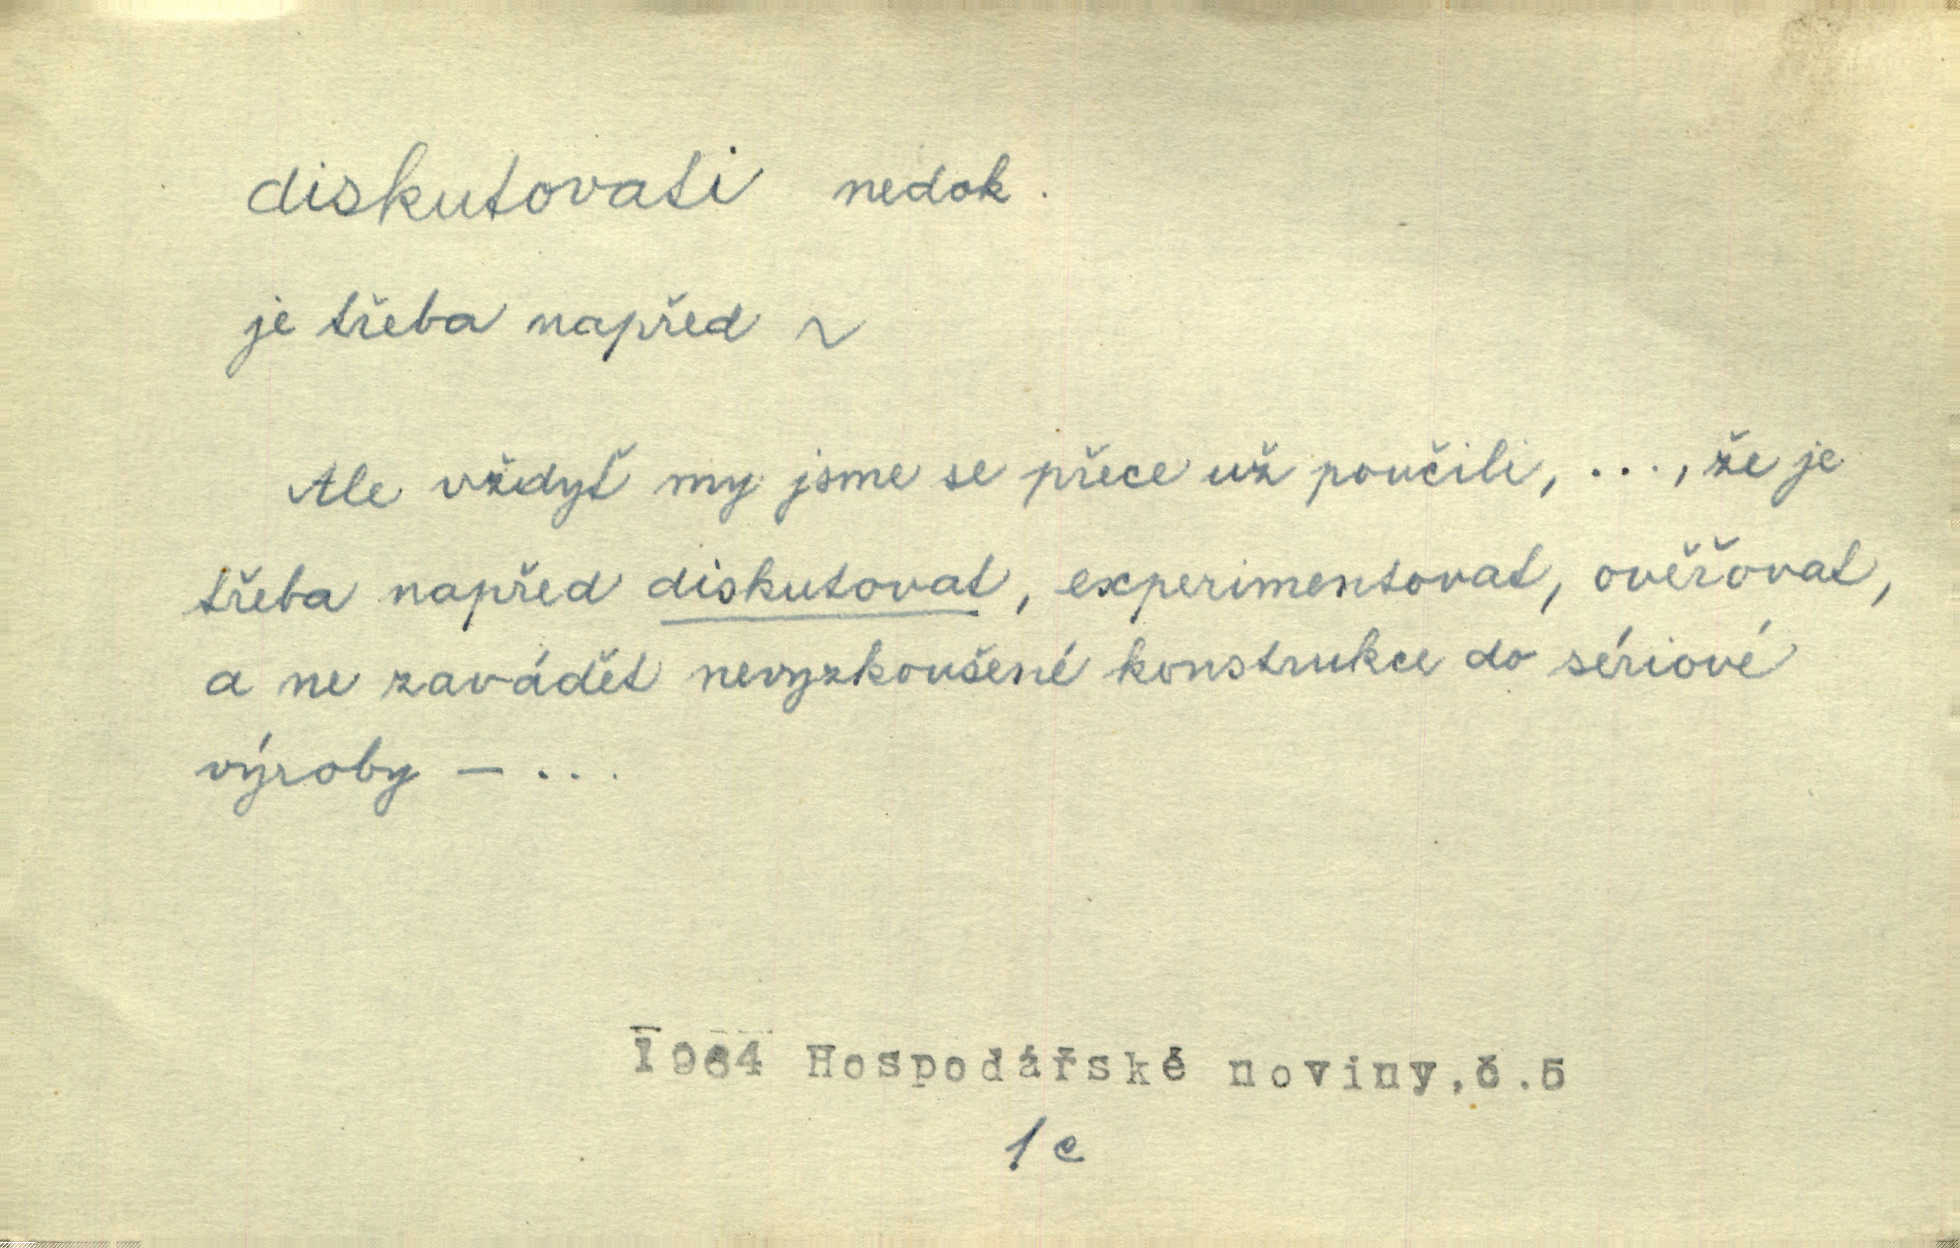 diskutovati nedok.
je třeba napřed ~
Ale vždyť my jsme se přece už poučili, ..., že je
třeba napřed diskutovat, experimentovat, ověřovat,
a ne zavádět nevyzkoušené konstrukce do sériové
výroby – ...
1964 Hospodářské noviny,č.5
1c